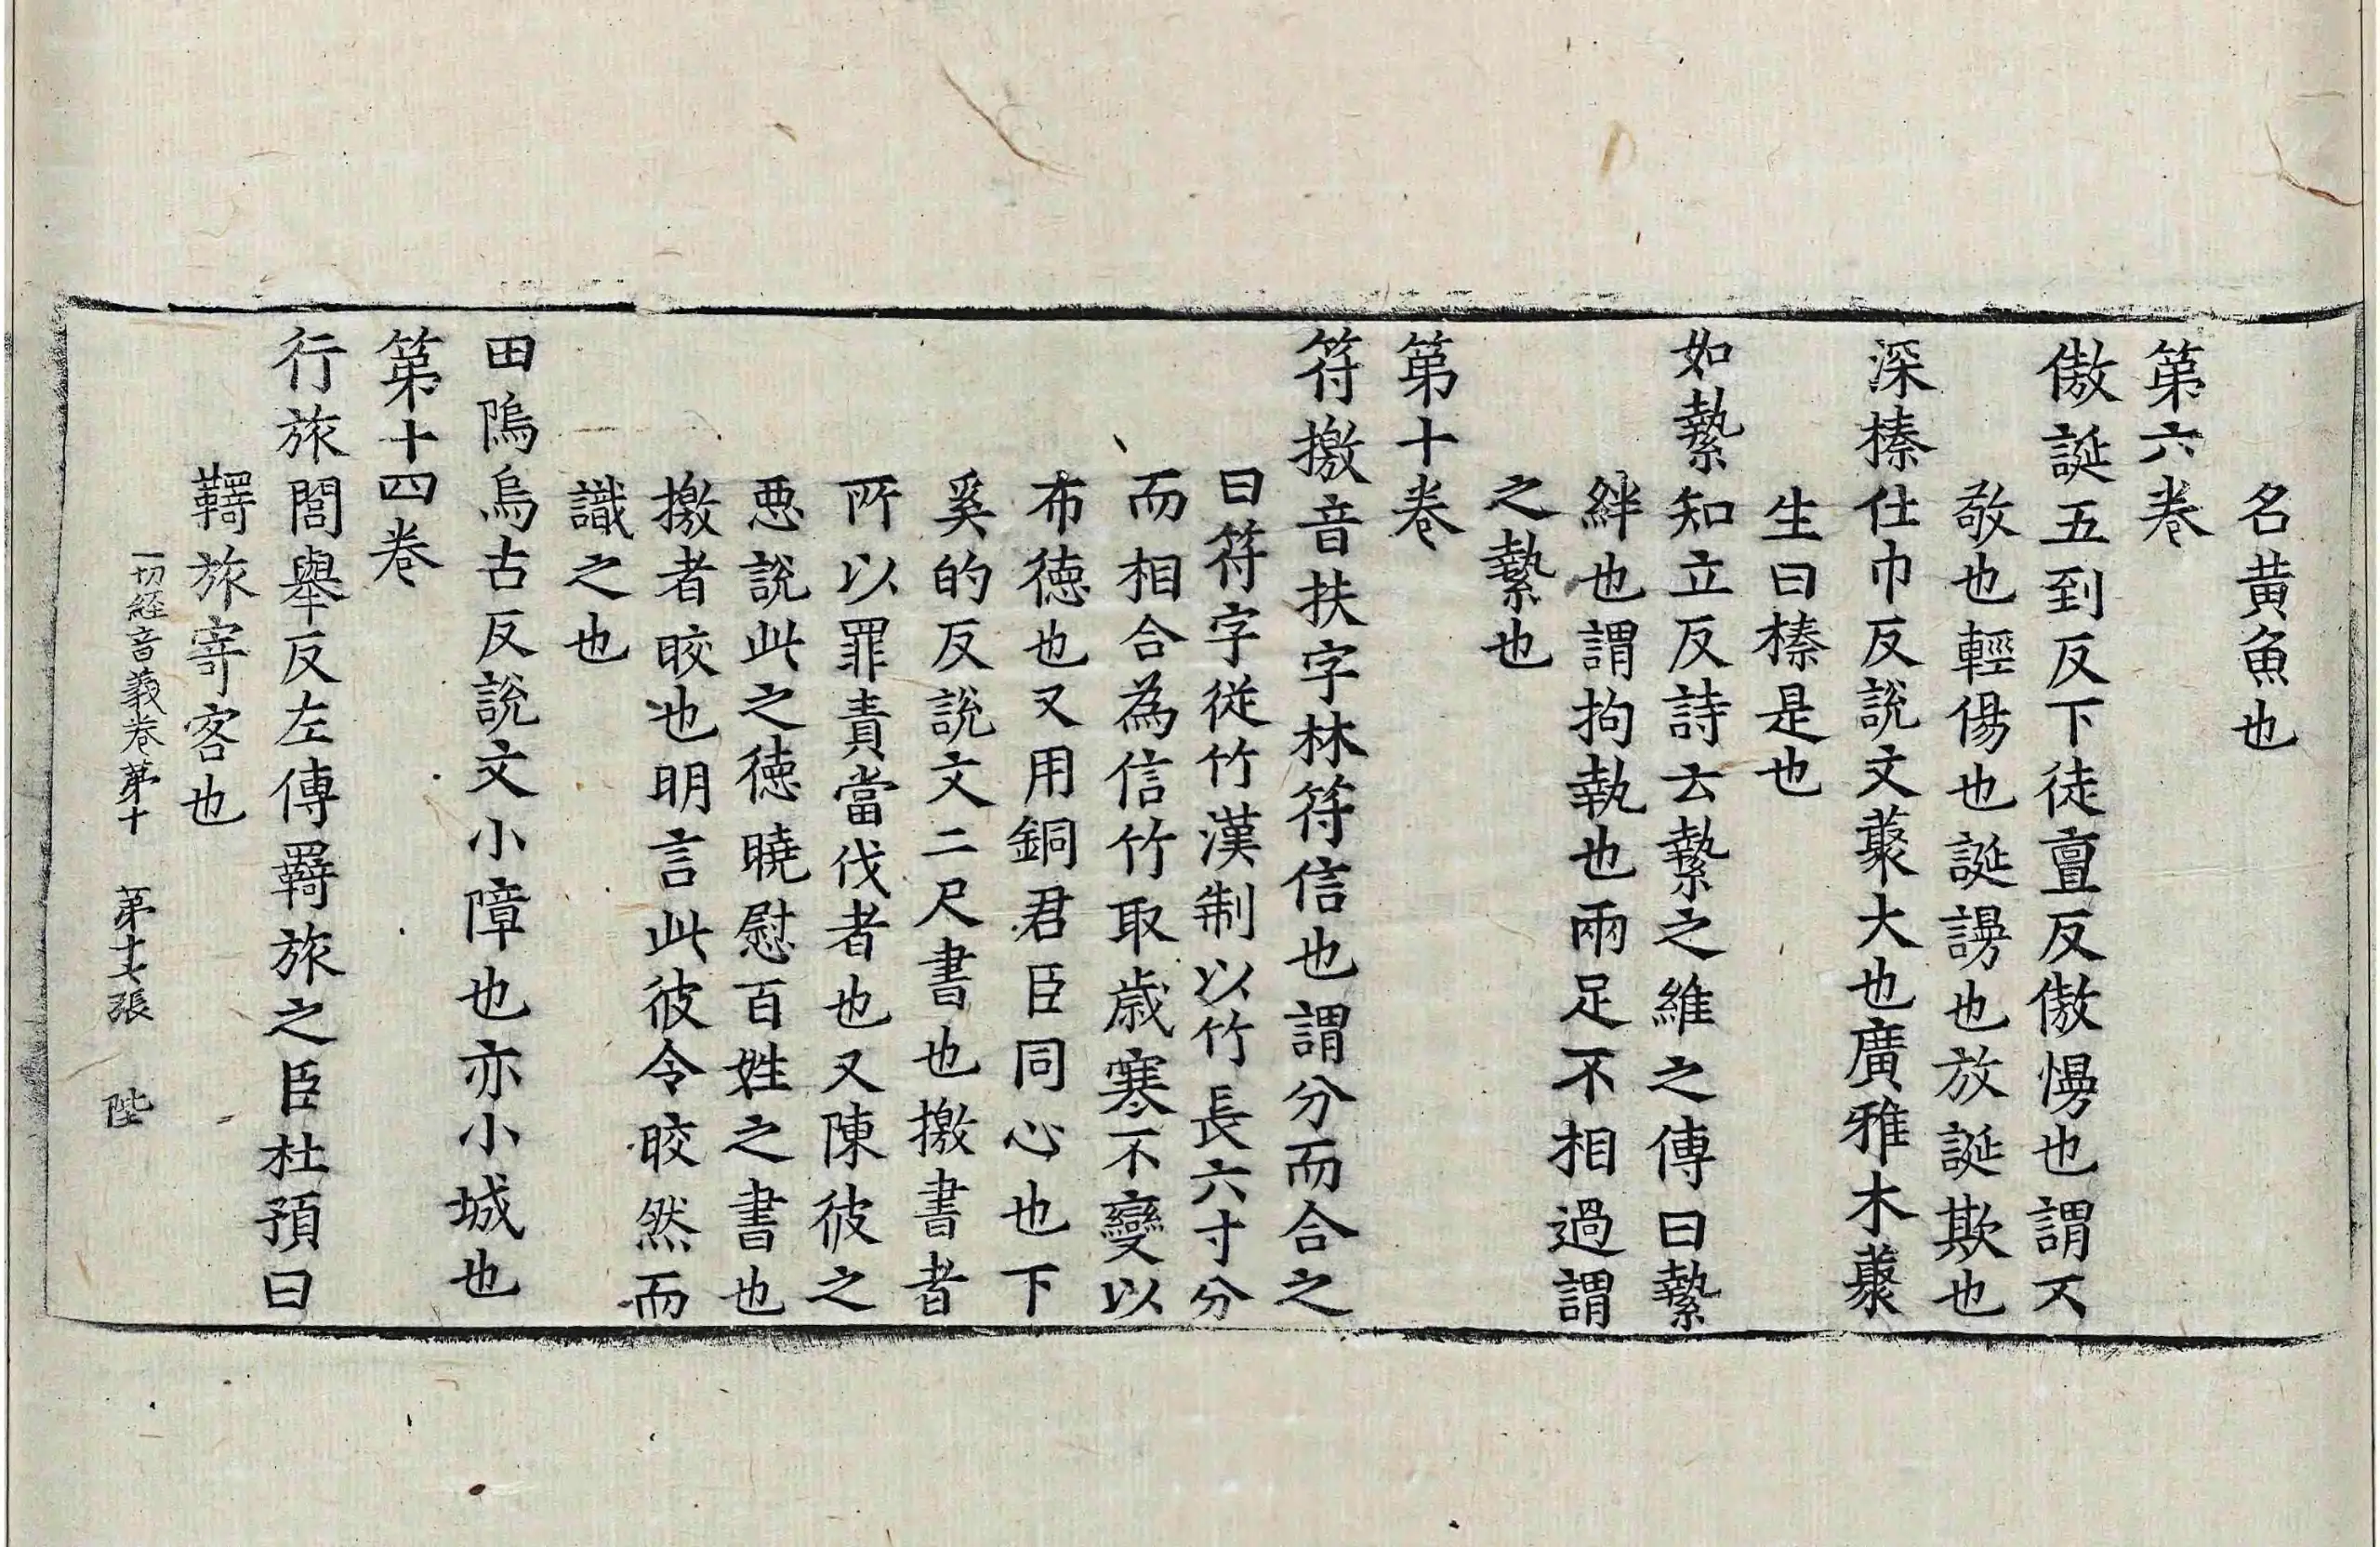 名黃魚也
第六卷
傲誕五到反下徒亶反傲慢也謂不
敬也輕傷也誕謾也放誕欺也
深榛仕巾反說文藂大也廣雅木藂
生曰榛是也
如縶知立反詩云縶之維之傳曰縶
絆也謂拘執也兩足不相過謂
之縶也
第十卷
符撽音扶字林符信也謂分而合之
曰符字從竹漢制以竹長六寸分
而相合為信竹取歲寒不變以
布德也又用銅君臣同心也下
奚的反說文二尺書也撽書者
所以罪責當伐者也又陳彼之
惡說此之德曉慰百姓之書也
撽者晈也明言此彼令晈然而
識之也
田隖烏古反說文小障也亦小城也
第十四卷
行旅閭舉反左傳羇旅之臣杜預曰
羇旅寄客也
一切經音義卷第十 第十七張 陛